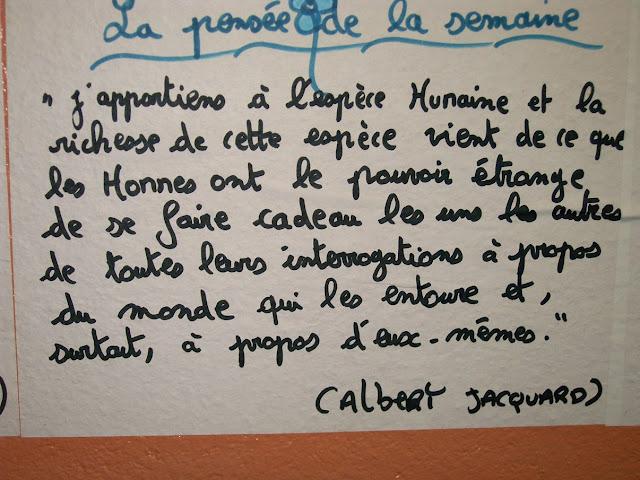 La pensée de la semaine
" j'appartiens à l'espèce Humaine et la
richesse de cette espèce vient de ce que
les Hommes ont le pouvoir étrange
de se faire cadeau les uns les autres
de toutes leurs interrogations à propos
du monde qui les entoure et,
surtout, à propos d'eux-mêmes."
(Albert JACQUARD)